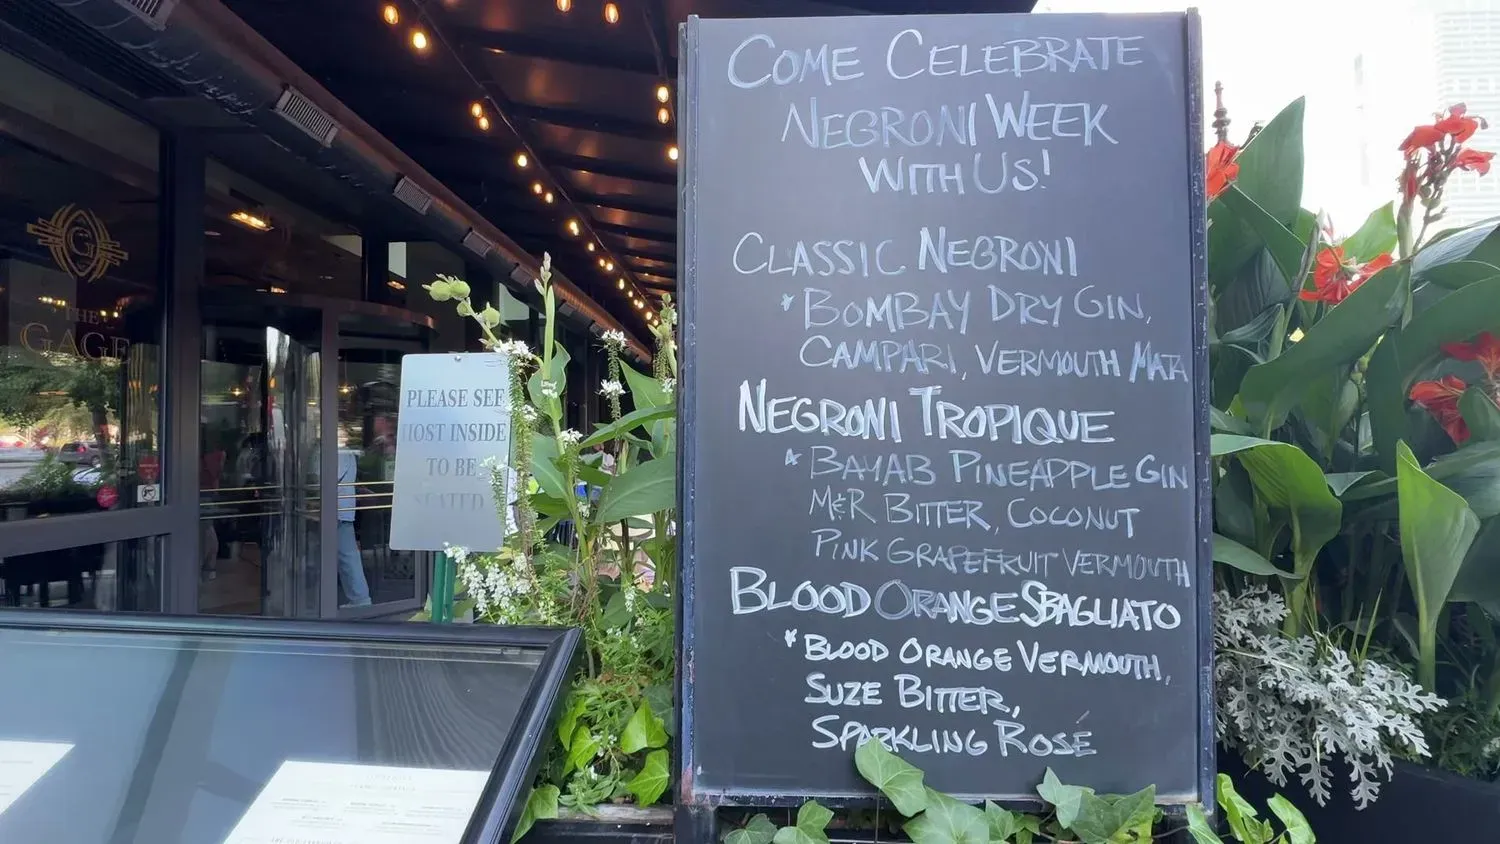 COME CELEBRATE
NEGRONI WEEK
WITH US!
CLASSIC NEGRONI
* BOMBAY DRY GIN,
CAMPARI, VERMOUTH MATA
NEGRONI TROPIQUE
* BAYAB PINEAPPLE GIN
M&R BITTER, COCONUT
PINK GRAPEFRUIT VERMOUTH
BLOOD ORANGE SBAGLIATO
* BLOOD ORANGE VERMOUTH,
SUZE BITTER,
SPARKLING ROSÉ
G
THE
GAGE
PLEASE SEE
HOST INSIDE
TO BE
SEATED